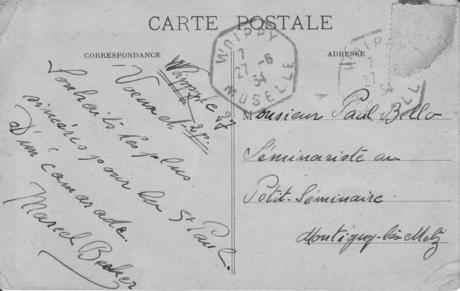 CARTE POSTALE
CORRESPONDANCE
ADRESSE
WOIPPY
27-6
34
MOSELLE
Woippy le 27
Vœux et
Souhaits les plus
sincères pour la St Paul.
D'un camarade.
Marcel Becker
Monsieur Paul Bello
Séminariste au
Petit-Séminaire.
Montigny-lès-Metz